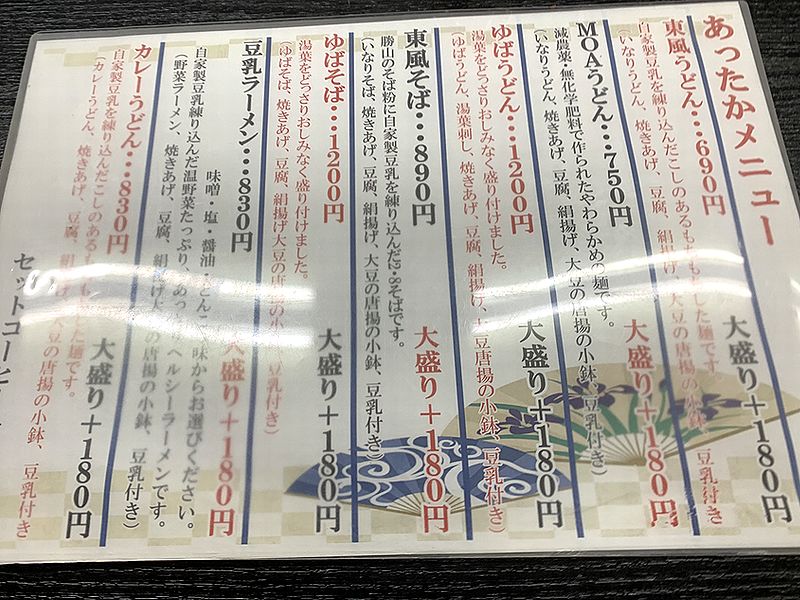 あったかメニュー
東風うどん・・・690円
大盛り＋180円
自家製豆乳を練り込んだこしのあるもちもちした麺です。
(いなりうどん、焼きあげ、豆腐、絹揚げ、大豆の唐揚の小鉢、豆乳付き
MOAうどん・・・750円
大盛り＋180円
減農薬・無化学肥料で作られたやわらかめの麺です。
(いなりうどん、焼きあげ、豆腐、絹揚げ、大豆の唐揚の小鉢、豆乳付き)
ゆばうどん・・・1200円
大盛り＋180円
湯葉をどっさりおしみなく盛り付けました。
(ゆばうどん、湯葉刺し、焼きあげ、豆腐、絹揚げ、大豆唐揚の小鉢、豆乳付き)
東風そば・・・890円
大盛り＋180円
勝山のそば粉に自家製豆乳を練り込んだ2・8そばです。
(いなりそば、焼きあげ、豆腐、絹揚げ、大豆の唐揚の小鉢、豆乳付き)
ゆばそば・・・1200円
大盛り＋180円
湯葉をどっさりおしみなく盛り付けました。
(ゆばそば、焼きあげ、豆腐、絹揚げ大豆の唐揚の小鉢、豆乳付き)
豆乳ラーメン・・・830円
大盛り＋180円
味噌・塩・醤油・とんこつ味からお選びください。
自家製豆乳練り込んだ温野菜たっぷり、あっさりヘルシーラーメンです。
(野菜ラーメン、焼きあげ、豆腐、絹揚げ大豆の唐揚の小鉢、豆乳付き)
カレーうどん・・・830円
大盛り＋180円
自家製豆乳を練り込んだこしのあるもちもちした麺です。
(カレーうどん、焼きあげ、豆腐、絹揚げ、大豆の唐揚の小鉢、豆乳付き
セットコーヒー